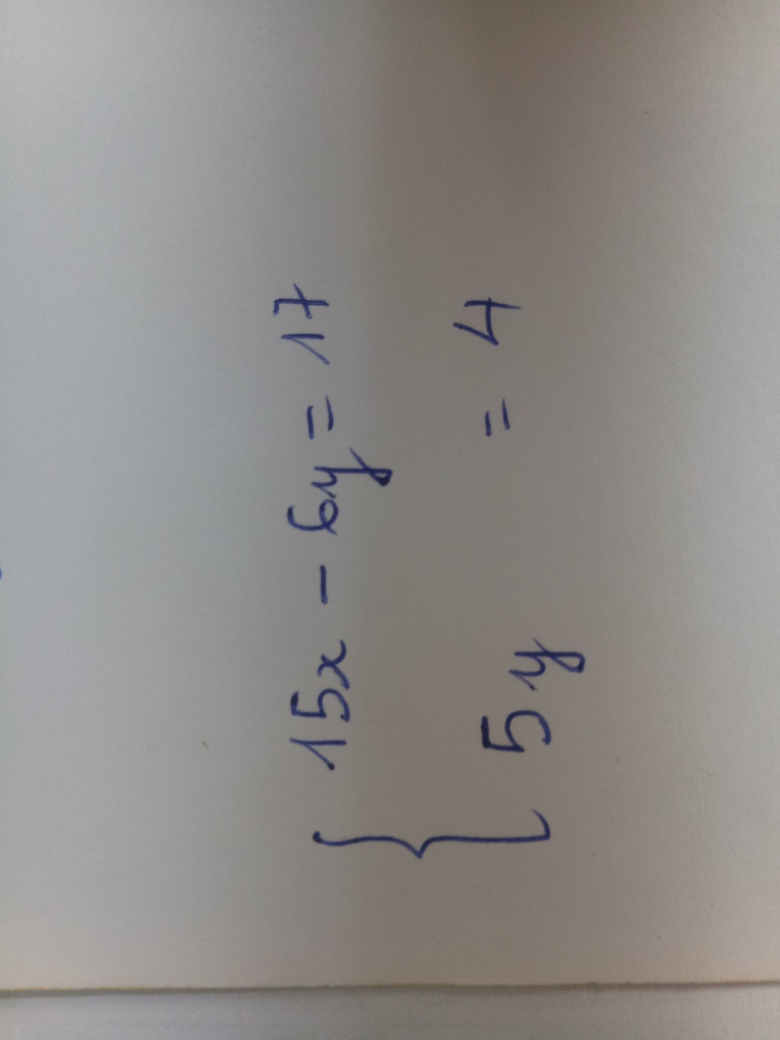 15x - 6y = 17
5y = 4